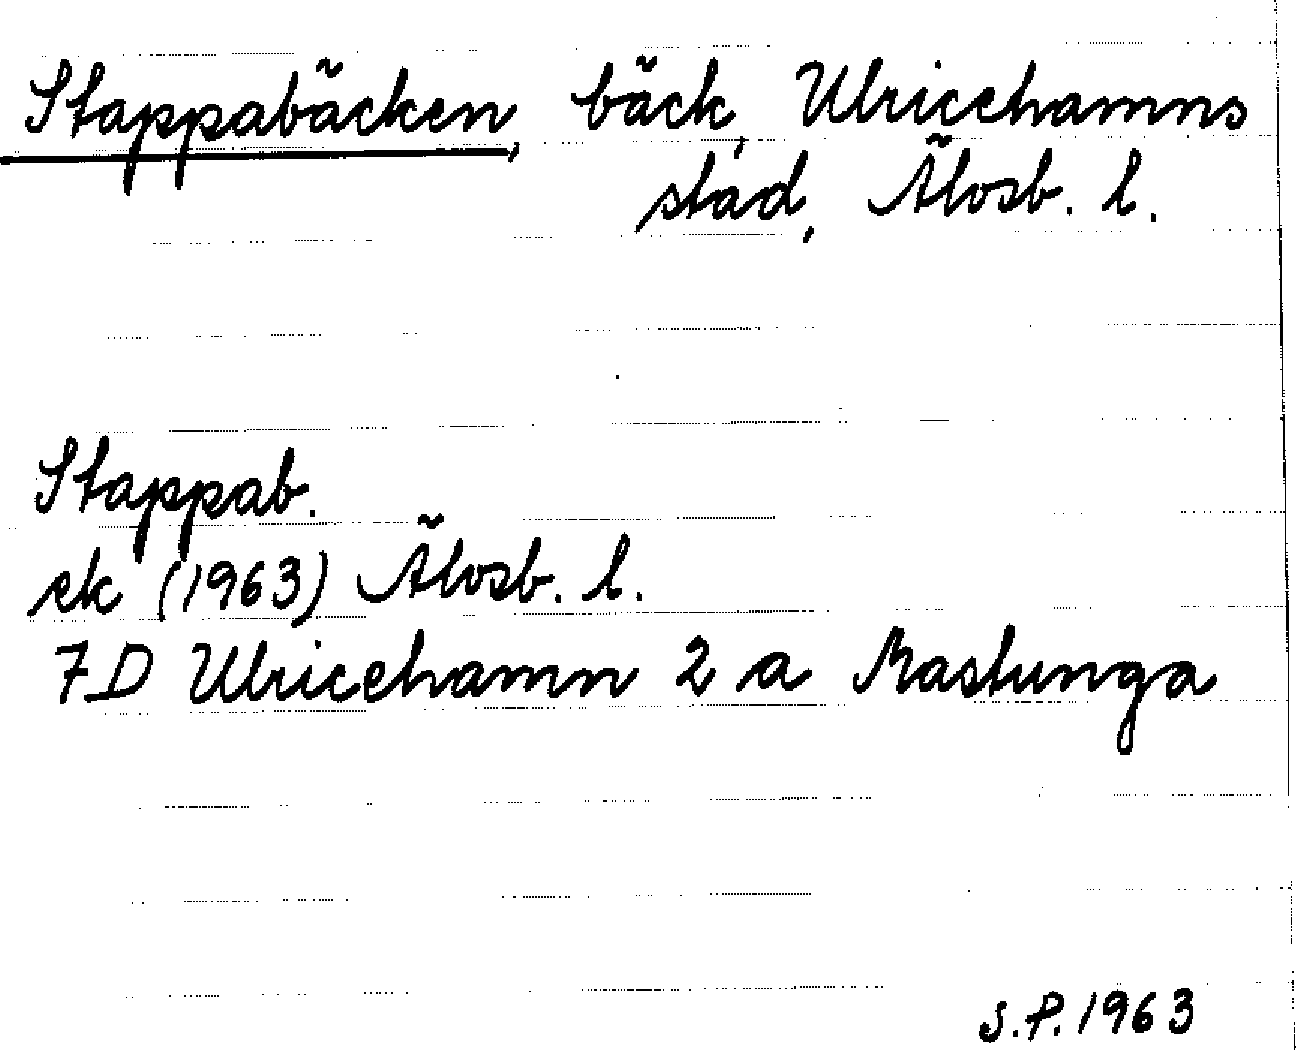 Stappabäcken, bäck, Ulricehamns
stad, Älvsb. l.
Stappab.
ek (1963) Älvsb. l.
7D Ulricehamn 2 a Rastunga
S.P. 1963